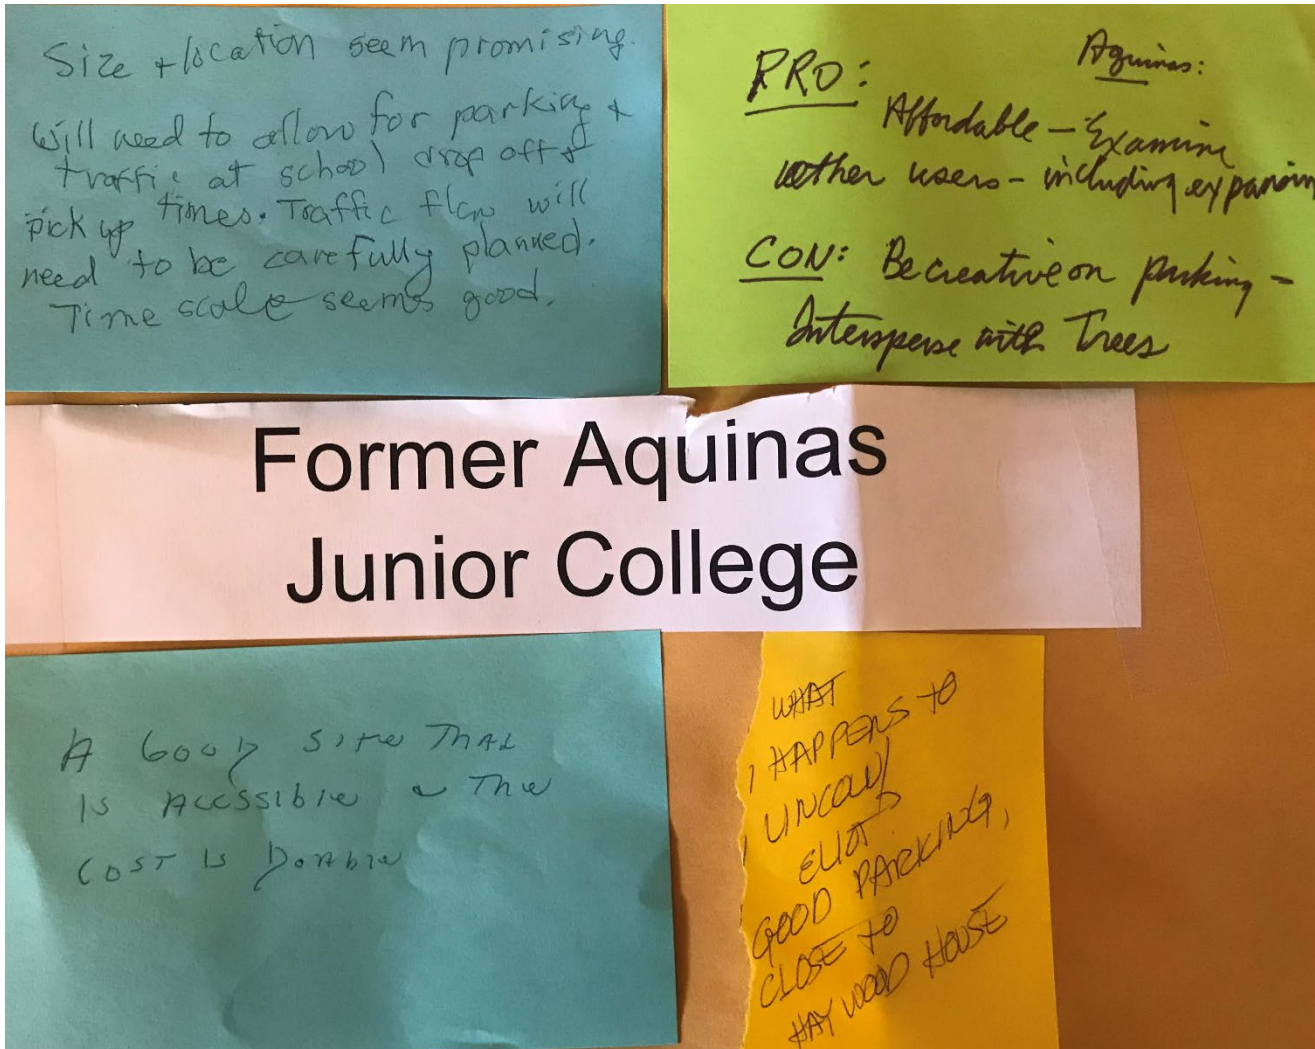 Size + location seem promising.
Will need to allow for parking +
traffic at school drop off +
pick up times. Traffic flow will
need to be carefully planned.
Time scale seems good.
Aquinas:
PRO:
Affordable – Examine
other users – including expansion
CON: Be creative on parking –
Intersperse with Trees
Former Aquinas
Junior College
A Good Site That
Is Accssible & The
Cost Is Doable
WHAT
HAPPENS TO
LINCOLN/
ELIOT
GOOD PARKING,
CLOSE TO
HAYWOOD HOUSE